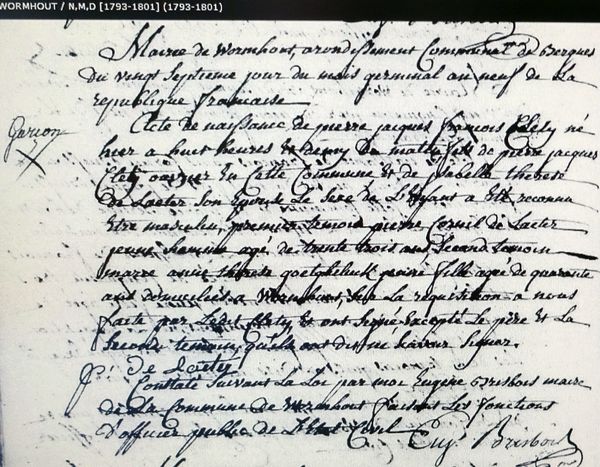 WORMHOUT / N,M,D [1793-1801] (1793-1801)
Mairie de Wormhout, arondissement Communal de Bergues
du vingt Septieme jour du mois germinal an neuf de La
republique francaise
garcon
Acte de naissance de pierre jacques francois Clety né
hier a huit heures et demy du matin, fils de pierre jacques
Clety ouvrier En cette Commune et de isabelle therese
De Laeter son Epouse Le Sexe de L'Enfant a Eté reconnu
Etre masculin, premier temoin pierre Cornil de Laeter
jeune homme agé de trente trois ans Second temoin
marie anne therese goetghebeult jeune fille agée de quarante
ans domiciliés a Wormhout, Sur La requisition a nous
faite par Ledit Clety Et ont signé Excepté Le père Et La
Second temoin qu'ils ont dit ne savoir signer.
P: C: De Laeter
Constaté Suivant La Loi par moi Eugene Brisbois maire
de La Commune de Wormhout faisant Les fonctions
d'officier public de L'Etat Civil Eug. Brisbois